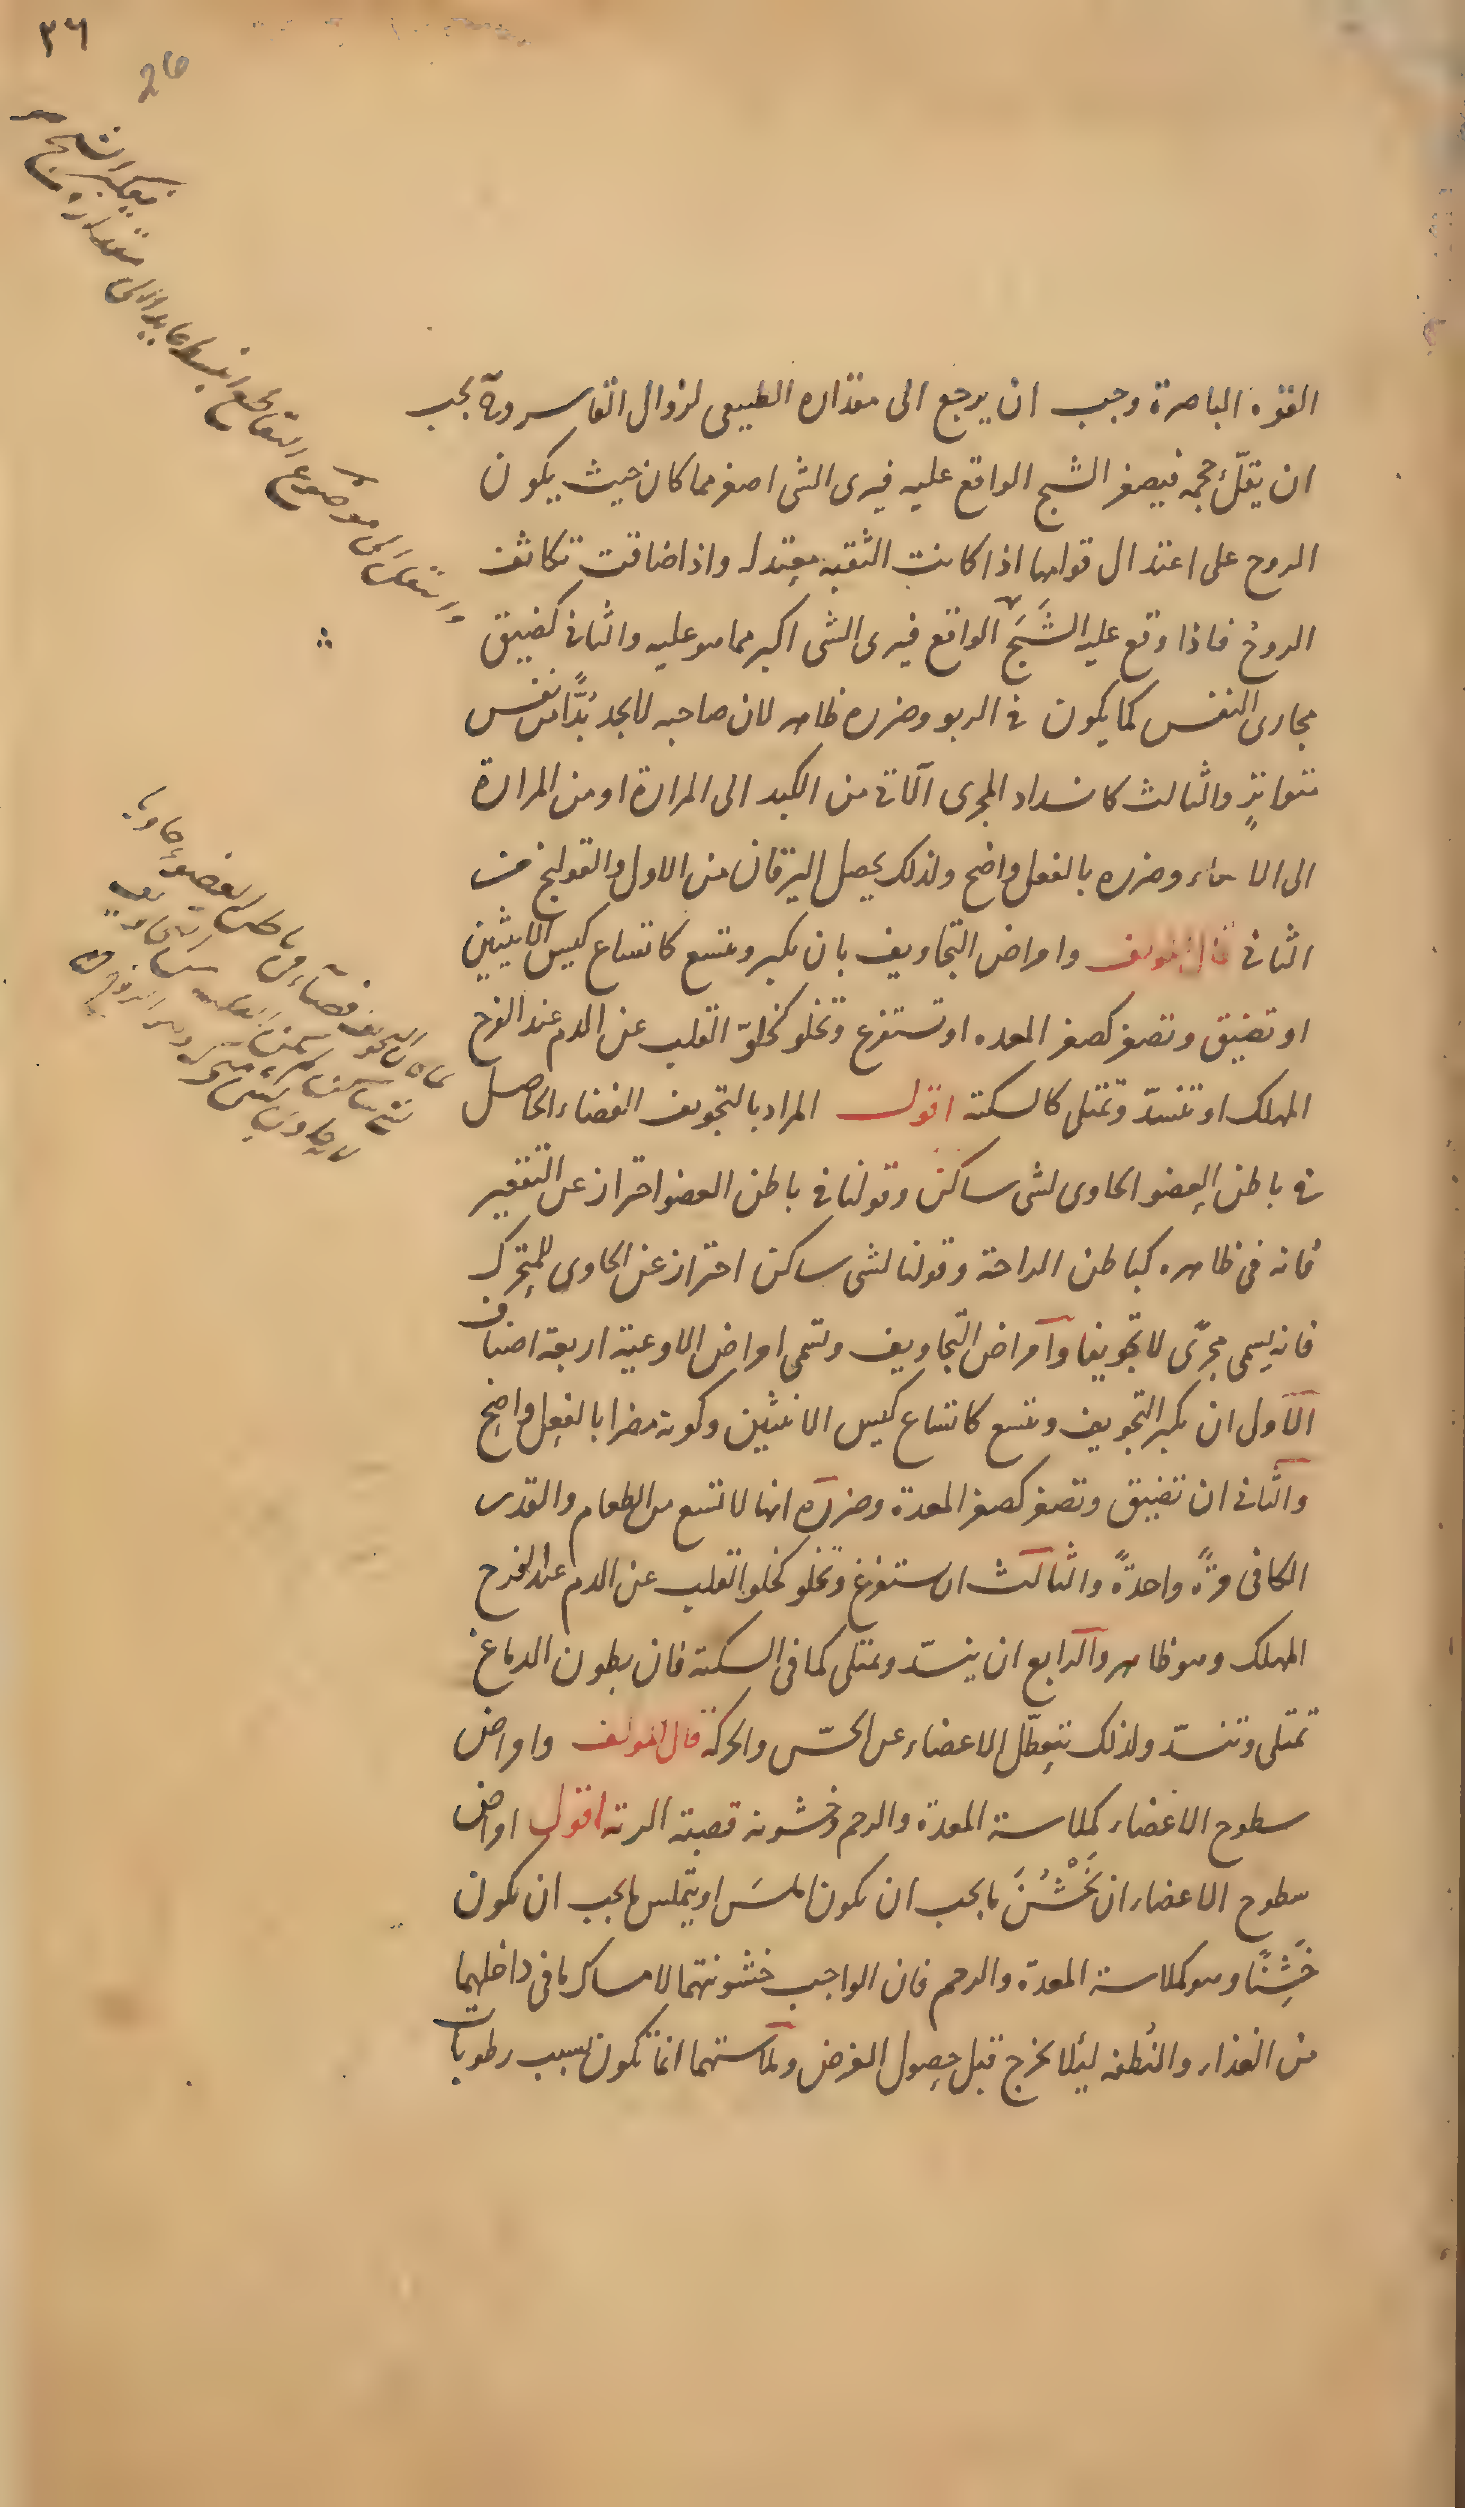 ٢٦
26
القوه الباصرة وجب ان يرجع الى مقداره الطبيعى لزوال القاسر وح يجب
ان يقلّ حجمه فيصغر الشبح الواقع عليه فيرى الشى اصغر مما كان حيث يكون
الروح على اعتدال قوامها اذا كانت الثقبه معتدله واذا ضاقت تكاثف
الروح فاذا وقع عليه الشَبَح الواقع فيرى الشى اكبر مما هو عليه والثانى كضيق
مجارى النفس كما يكون فى الربو وضرره ظاهر لان صاحبه لا يجد بُدًّا من نفس
متواترٍ والثالث كانسداد المجرى الآتى من الكبد الى المرارة او من المرارة
الى الامعاء وضرره بالفعل واضح ولذلك يحصل اليرقان من الاول والقولنج من
الثانى قال المؤلف وامراض التجاويف بان يكبر وتتسع كاتساع كيس الانثيين
او تضيق وتصغر كصغر المعده او تستفرغ وتخلو كخلوّ القلب عن الدم عند الفرح
المهلك او تنسدّ وتمتلى كالسكته اقول المراد بالتجويف الفضاء الحاصل
فى باطن العضو الحاوى لشى ساكن وقولنا فى باطن العضو احتراز عن التقعير
فانه فى ظاهره كباطن الراحة وقولنا لشى ساكن احتراز عن الحاوى للمتحرك
فانه يسمى مجرًى لا تجويفا وامراض التجاويف وتسمى امراض الاوعية اربعة اصناف
الاول ان يكبر التجويف وتتسع كاتساع كيس الانثيين وكونه مضرا بالفعل واضح
والثانى ان تضيق وتصغر كصغر المعدة وضرره انها لا تتسع من الطعام والقدر
الكافى مرّةً واحدةً والثالث ان ستفرغ وتخلو كخلو القلب عن الدم عند الفرح
المهلك وهو ظاهر والرابع ان ينسدّ ويمتلى كما فى السكتة فان بطون الدماغ
تمتلى وتنسدّ ولذلك تتعطّل الاعضاء عن الحسّ والحركة قال المؤلف وامراض
سطوح الاعضاء كملاسة المعدة والرحم وخشونة قصبة الرئة اقول امراض
سطوح الاعضاء ان يَخْشُنَ ما يجب ان يكون املسَ او يتملس ما يجب ان يكون
خَشِنًا وهو كملاسة المعدة والرحم فان الواجب خشونتهما لامساك ما فى داخلهما
من الغذاء والنُطفه ليئلا يخرج قبل حصول الغرض وملاستهما انما تكون بسبب رطوبات